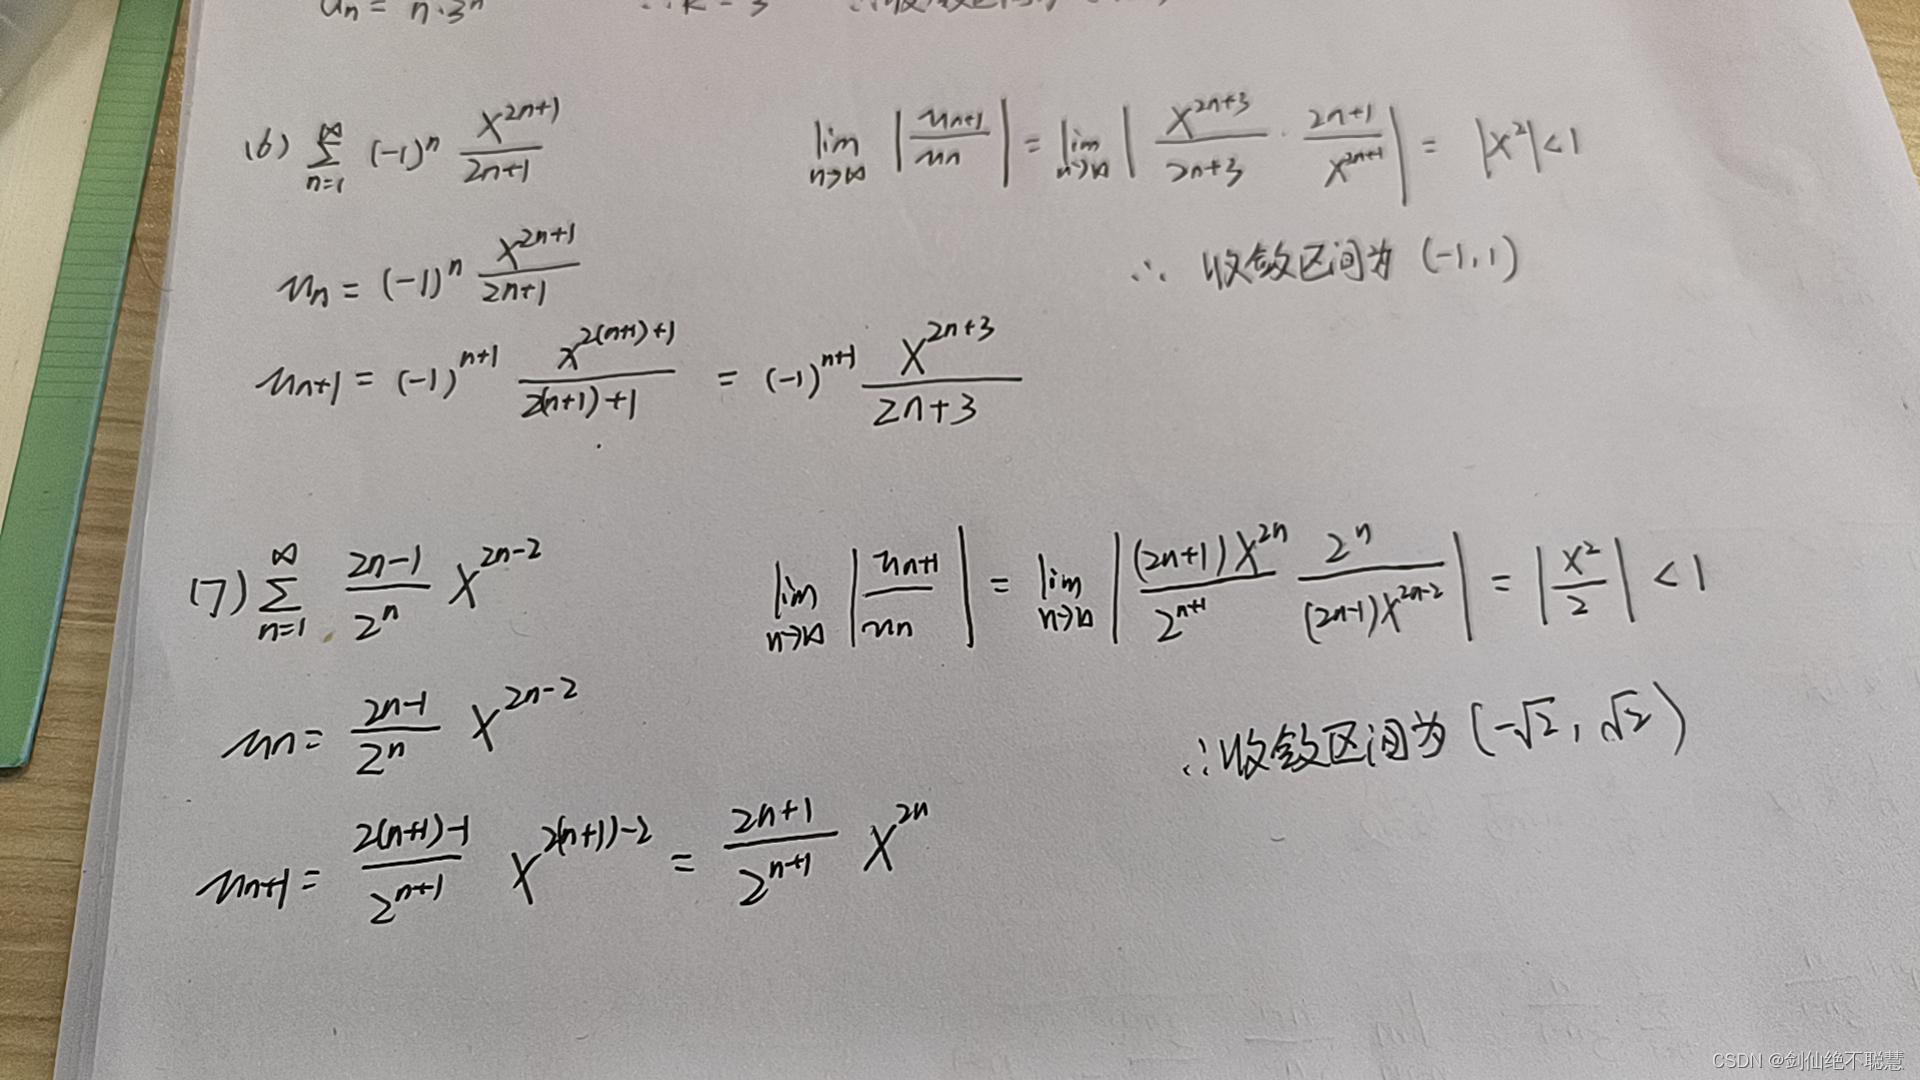 (6) ∑_{n=1}^{∞} (-1)^n \frac{x^{2n+1}}{2n+1}
u_n = (-1)^n \frac{x^{2n+1}}{2n+1}
u_{n+1} = (-1)^{n+1} \frac{x^{2(n+1)+1}}{2(n+1)+1} = (-1)^{n+1} \frac{x^{2n+3}}{2n+3}
lim_{n→∞} |\frac{u_{n+1}}{u_n}| = lim_{n→∞} |\frac{x^{2n+3}}{2n+3} · \frac{2n+1}{x^{2n+1}}| = |x^2| < 1
∴ 收敛区间为 (-1,1)
(7) ∑_{n=1}^{∞} \frac{2n-1}{2^n} x^{2n-2}
u_n = \frac{2n-1}{2^n} x^{2n-2}
u_{n+1} = \frac{2(n+1)-1}{2^{n+1}} x^{2(n+1)-2} = \frac{2n+1}{2^{n+1}} x^{2n}
lim_{n→∞} |\frac{u_{n+1}}{u_n}| = lim_{n→∞} |\frac{(2n+1)x^{2n}}{2^{n+1}} \frac{2^n}{(2n-1)x^{2n-2}}| = |\frac{x^2}{2}| < 1
∴收敛区间为 (-√2, √2)
CSDN @剑仙绝不聪慧